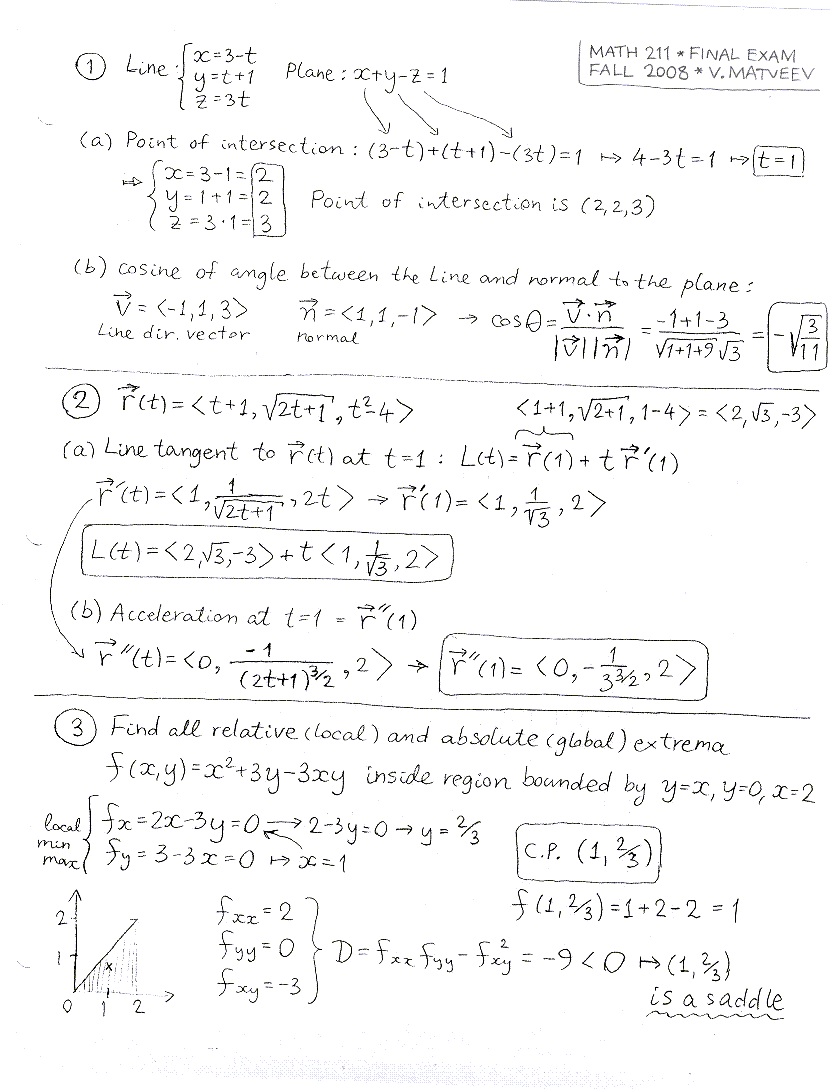 MATH 211 * FINAL EXAM
FALL 2008 * V. MATVEEV
① Line: { x=3-t
y=t+1
z=3t
Plane: x+y-z=1
(a) Point of intersection: (3-t)+(t+1)-(3t)=1 ↦ 4-3t=1 ↦ t=1
⇒ { x=3-1=2
y=1+1=2
z=3·1=3
Point of intersection is (2,2,3)
(b) cosine of angle between the Line and normal to the plane:
v⃗=<-1,1,3> n⃗=<1,1,-1> → cosθ = v⃗·n⃗ / |v⃗||n⃗| = -1+1-3 / √1+1+9 √3 = -√3/11
Line dir. vector normal
② r⃗(t)=<t+1,√2t+1,t²-4> <1+1,√2+1,1-4> = <2,√3,-3>
(a) Line tangent to r⃗(t) at t=1: L(t)=r⃗(1)+t r⃗'(1)
r⃗'(t)=<1, 1/√2t+1, 2t> → r⃗'(1)=<1, 1/√3, 2>
L(t)=<2,√3,-3>+t<1, 1/√3, 2>
(b) Acceleration at t=1 = r⃗''(1)
r⃗''(t)=<0, -1/(2t+1)^3/2, 2> → r⃗''(1)=<0, -1/3^3/2, 2>
③ Find all relative (local) and absolute (global) extrema
f(x,y)=x²+3y-3xy inside region bounded by y=x, y=0, x=2
local min max { fx=2x-3y=0 → 2-3y=0 → y=2/3
fy=3-3x=0 ↦ x=1
C.P. (1, 2/3)
f(1, 2/3)=1+2-2=1
2
1
0 1 2
x
fxx=2
fyy=0
fxy=-3
} D=fxx fyy - fxy²=-9<0 ↦ (1, 2/3)
is a saddle